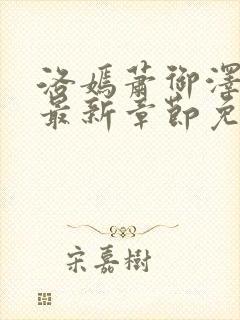 洛嫣萧御泽
最新章节免
宋嘉树